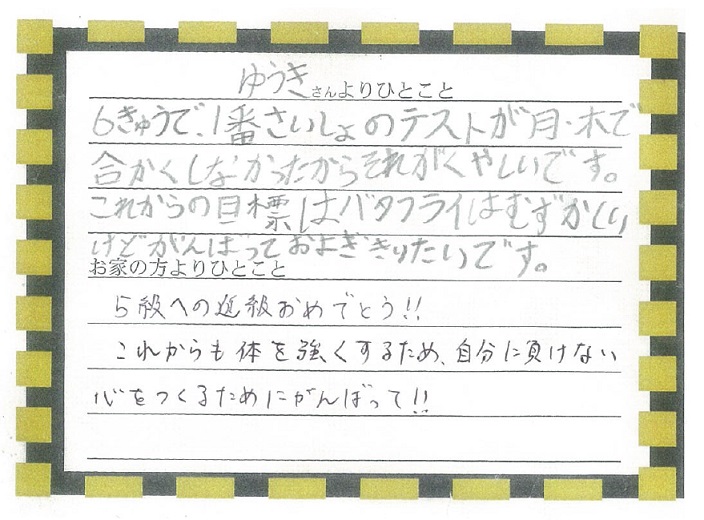 ゆうきさんよりひとこと
6きゅうで、1番さいしょのテストが月・木で
合かくしなかったからそれがくやしいです。
これからの目標はバタフライはむずかしい
けどがんばっておよぎきりたいです。
お家の方よりひとこと
5級への進級おめでとう!!
これからも体を強くするため、自分に負けない
心をつくるためにがんばって!!